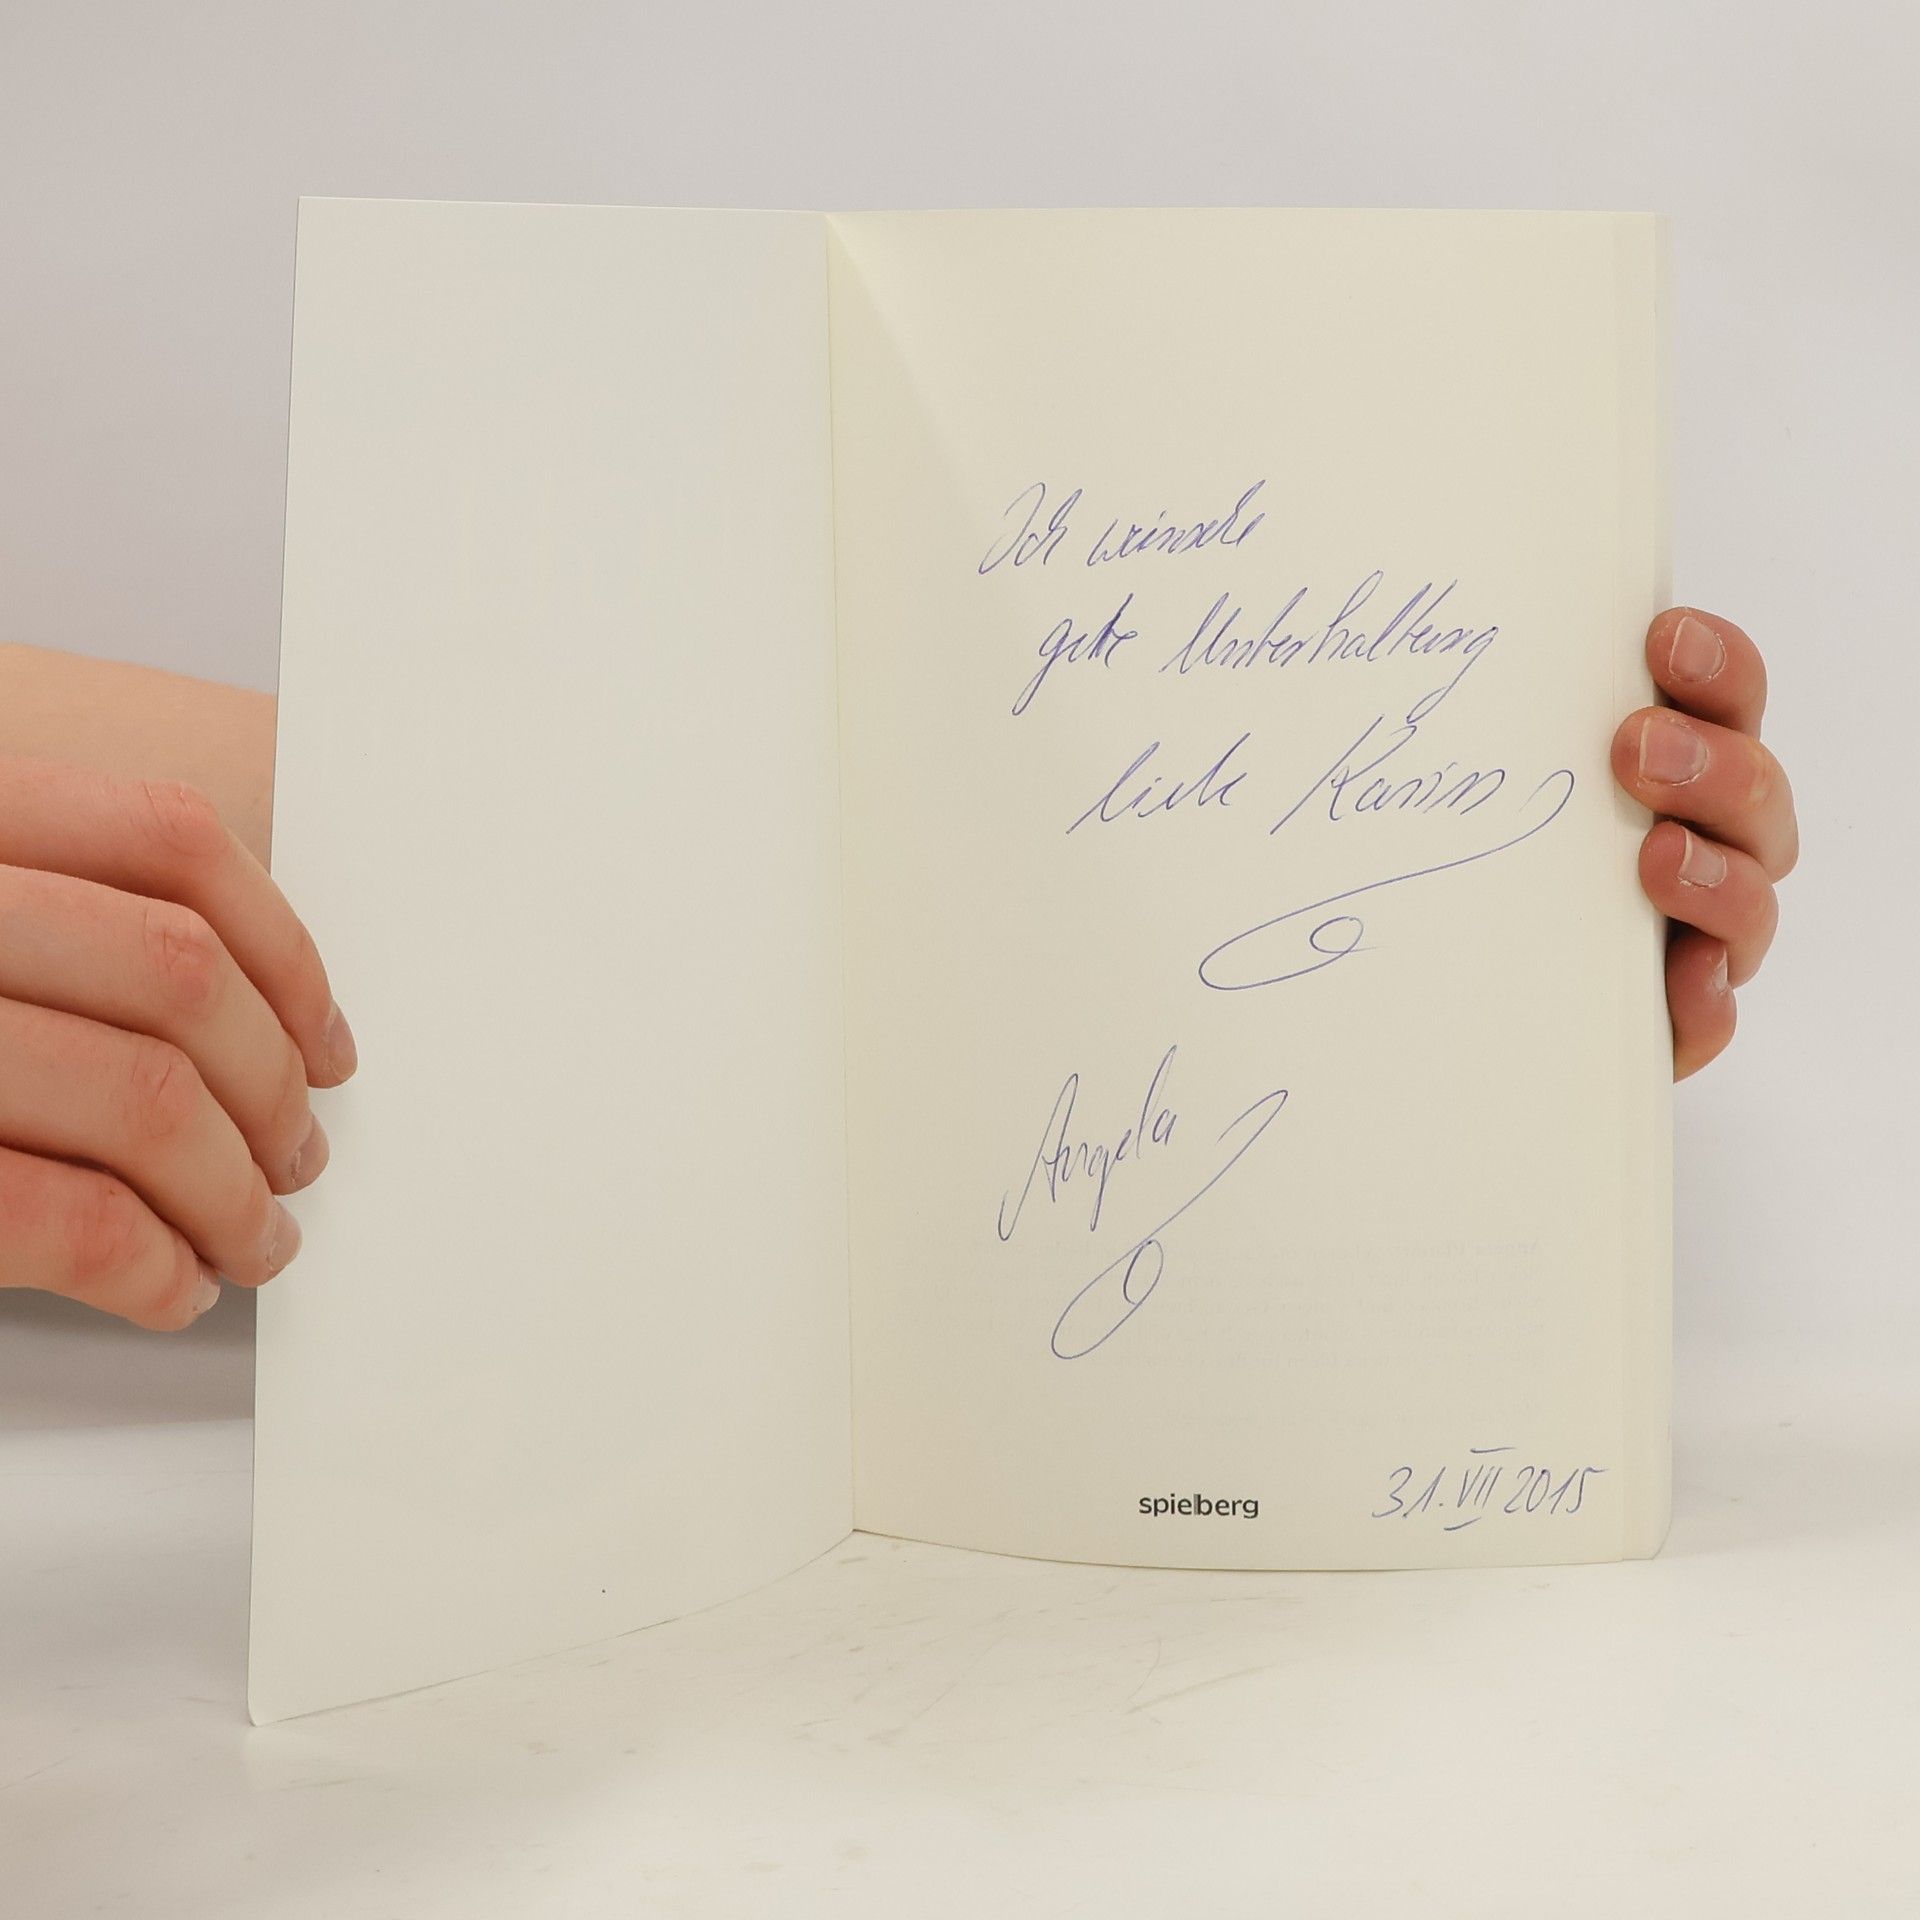 Ich wünsche
gute Unterhaltung
liebe Karin
Angela
spielberg 31. VII 2015